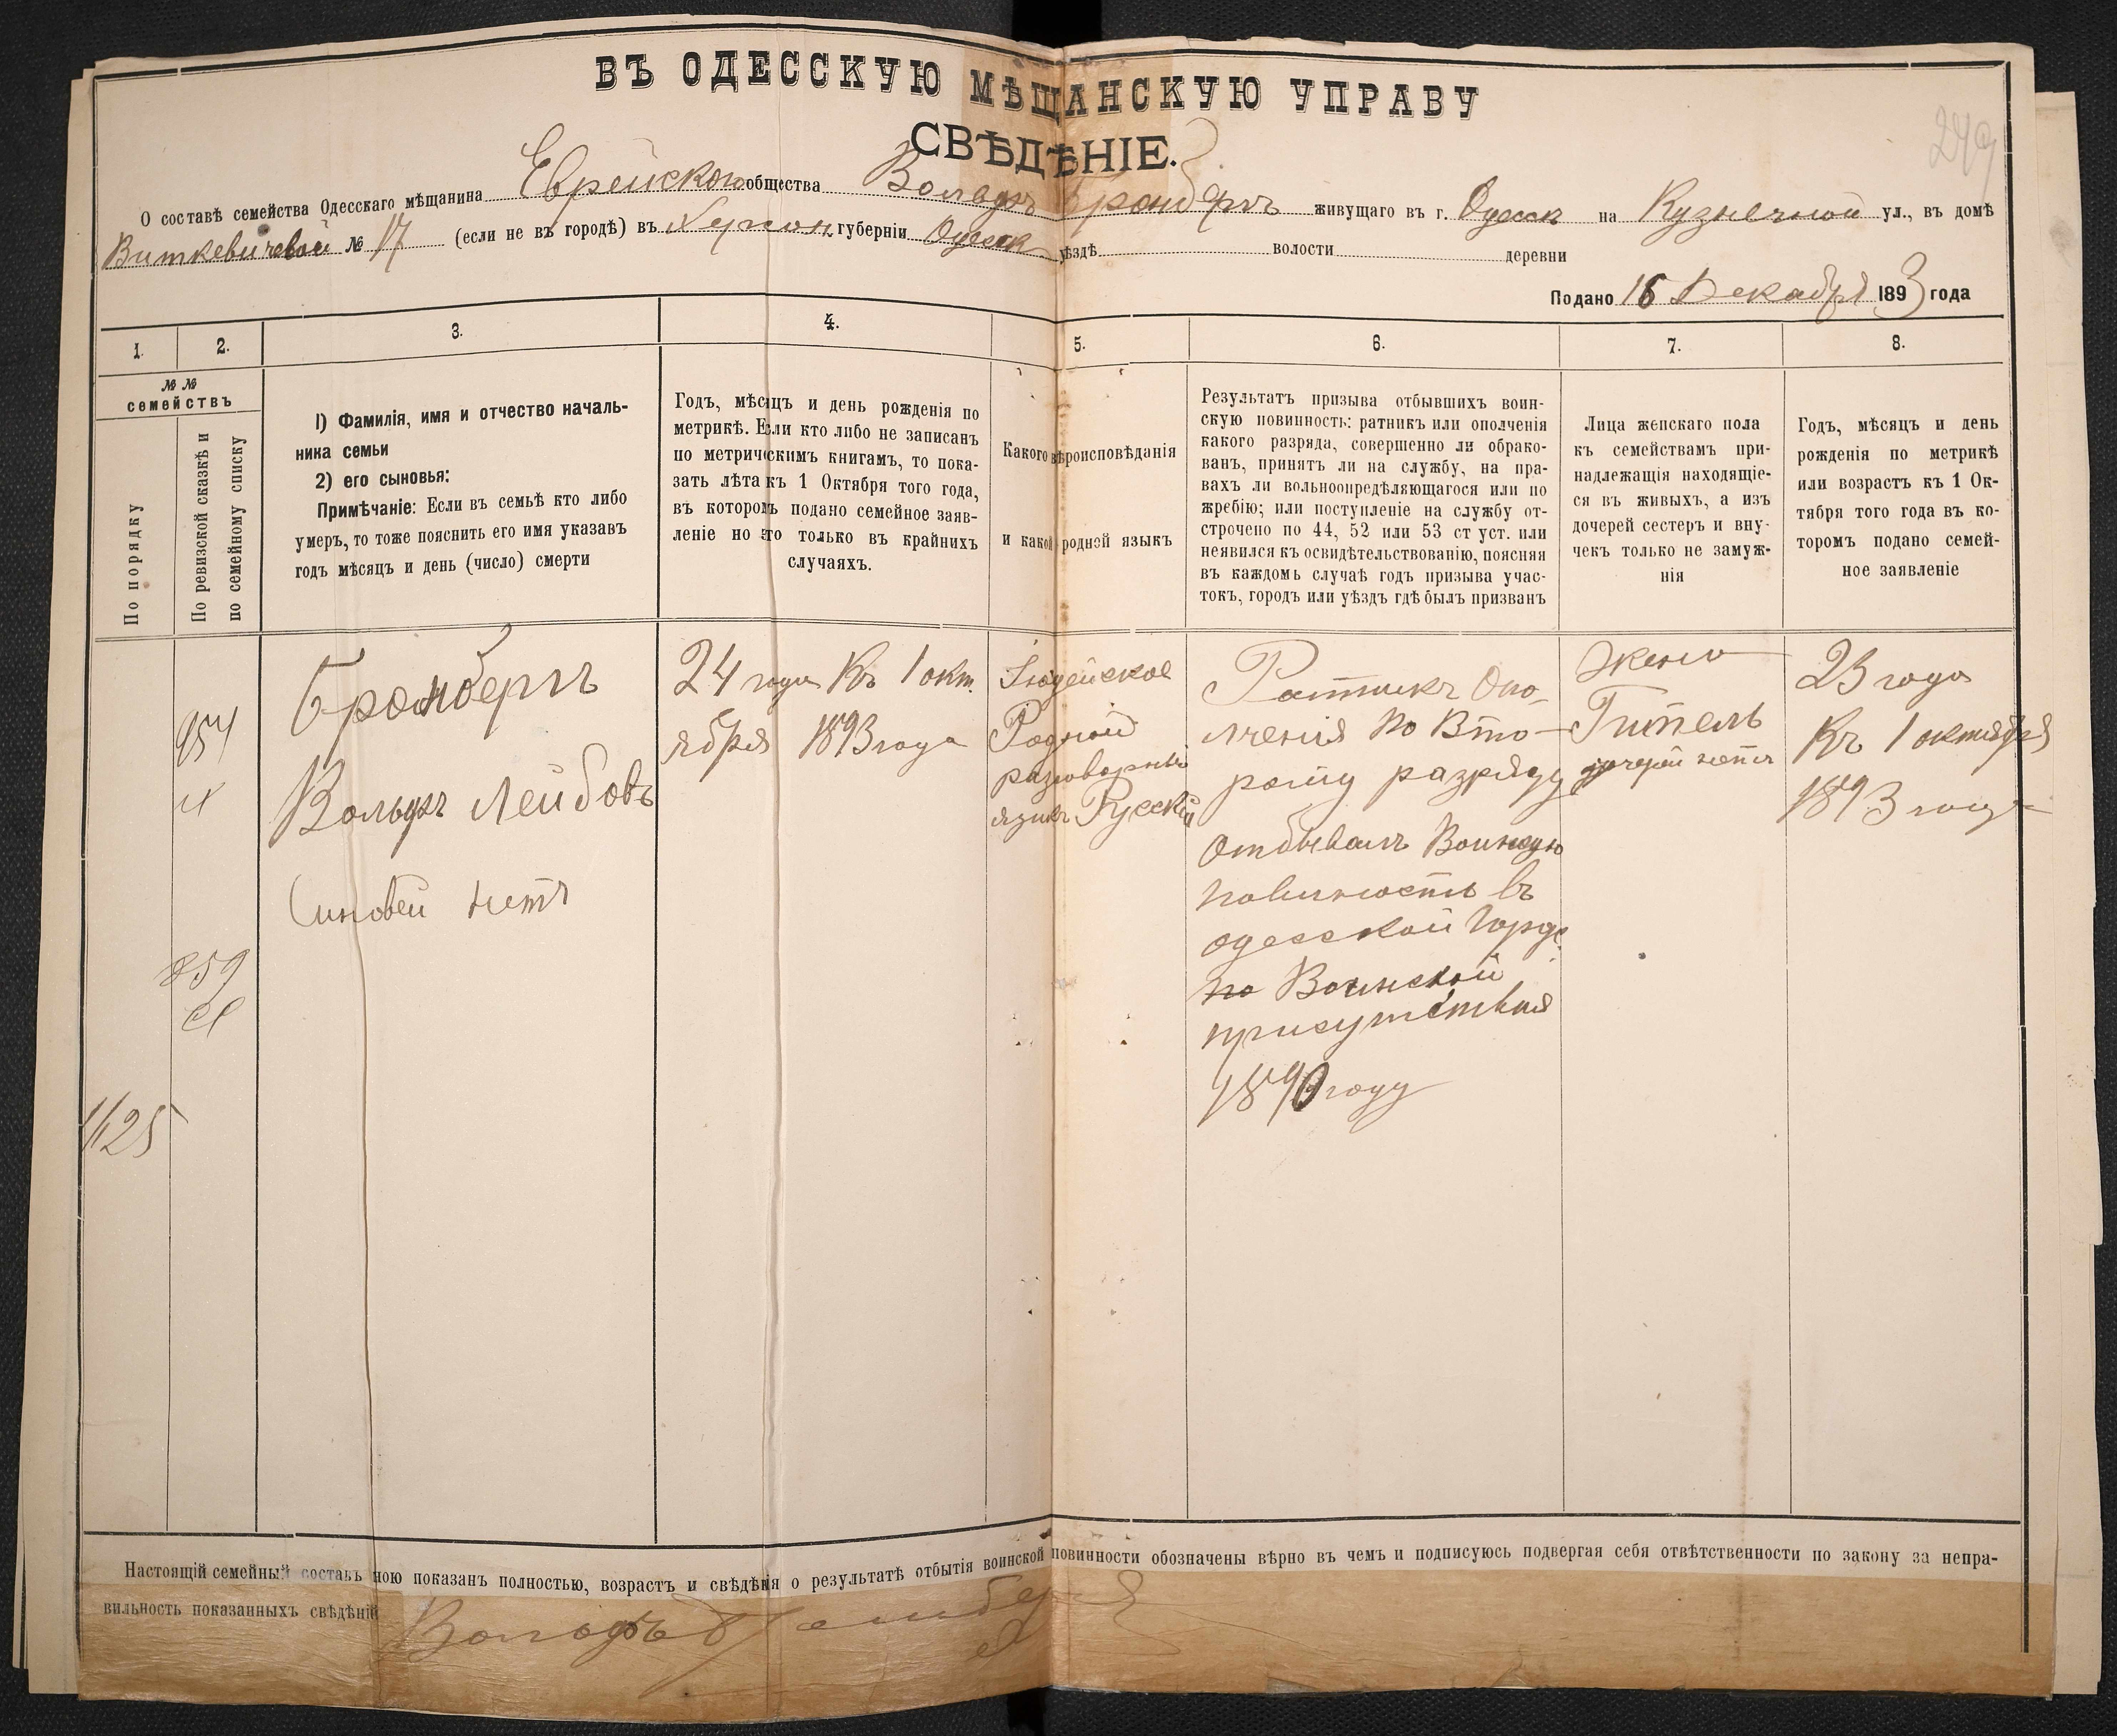 249
ВЪ ОДЕССКУЮ МѢЩАНСКУЮ УПРАВУ
СВѢДѢНІЕ.
О составѣ семейства Одесскаго мѣщанина Еврейского общества Вольфъ Бромбергъ живущаго въ г. Одесск на Кузнечной ул., въ домѣ
Виткевичевой № 17 (если не въ городѣ) въ Херсон. губерніи Одесск уѣздѣ волости деревни
Подано 16 Декабря 1893 года
1. 2. 3. 4. 5. 6. 7. 8.
№ №
семействъ
По порядку
По ревизской сказкѣ и
по семейному списку
I) Фамилія, имя и отчество началь-
ника семьи
2) его сыновья:
Примѣчаніе: Если въ семьѣ кто либо
умеръ, то тоже пояснить его имя указавъ
годъ мѣсяцъ и день (число) смерти
Годъ, мѣсяцъ и день рожденія по
метрикѣ. Если кто либо не записанъ
по метрическимъ книгамъ, то пока-
зать лѣта къ 1 Октября того года,
въ которомъ подано семейное заяв-
леніе но это только въ крайнихъ
случаяхъ.
Какого вѣроисповѣданія
и какой родной языкъ
Результатъ призыва отбывшихъ воин-
скую повинность: ратникъ или ополченія
какого разряда, совершенно ли обрако-
ванъ, принятъ ли на службу, на пра-
вахъ ли вольноопредѣляющагося или по
жребію; или поступленіе на службу от-
строчено по 44, 52 или 53 ст уст. или
неявился къ освидѣтельствованію, поясняя
въ каждомъ случаѣ годъ призыва учас-
токъ, городъ или уѣздъ гдѣ былъ призванъ
Лица женскаго пола
къ семействамъ при-
надлежащія находящіе-
ся въ живыхъ, а изъ
дочерей сестеръ и вну-
чекъ только не замуж-
нія
Годъ, мѣсяцъ и день
рожденія по метрикѣ
или возрастъ къ 1 Ок-
тября того года въ ко-
торомъ подано семей-
ное заявленіе
954
859
1125
Бромбергъ
Вольфъ Лейбовъ
Синовей нетъ
24 года Къ 1 окт.
ября 1893 года
Іюдейское
Родной
разговорный
языкъ Русскій
Ратникъ Опо-
лченія по Вто-
рому разряду
Отбывалъ Воинскую
повиность въ
одесской Городс.
по Воинской
присутствия
1890 году
Жена
Гитель
дочерей нетъ
23 года
Къ 1 октября
1893 года
Настоящій семейный составъ мною показанъ полностью, возрастъ и свѣдѣнія о результатѣ отбытія воинской повинности обозначены вѣрно въ чемъ и подписуюсь подвергая себя отвѣтственности по закону за непра-
вильность показанныхъ свѣдѣній Вольфъ Бромберг